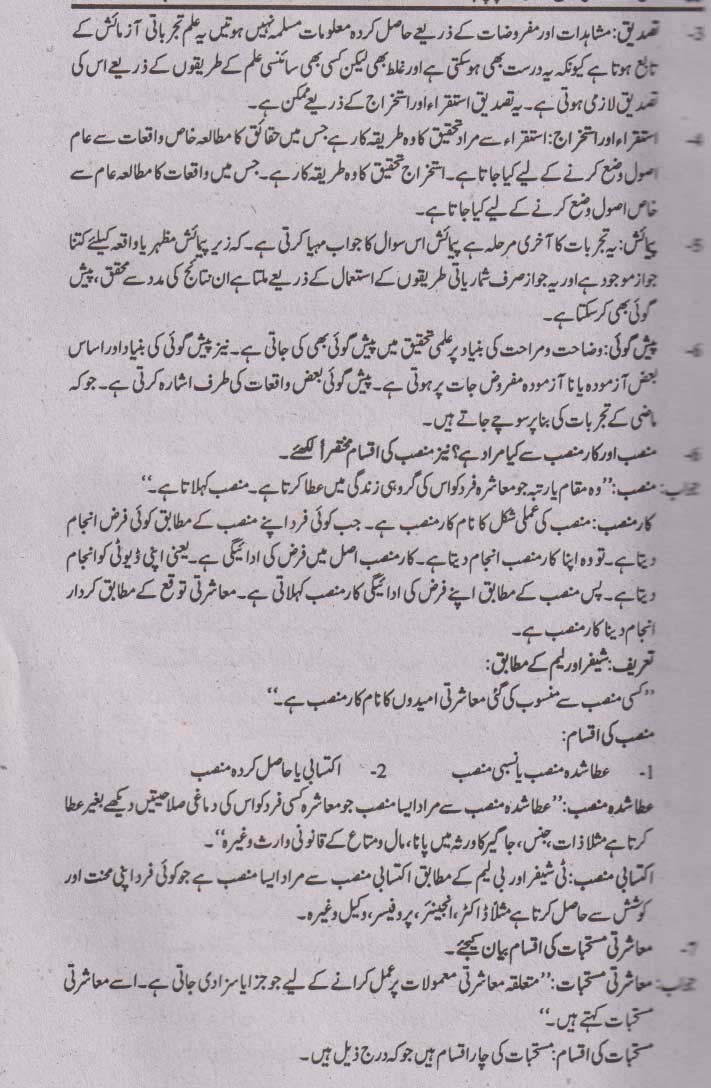 3- تصدیق: مشاہدات اور مفروضات کے ذریعے حاصل کردہ معلومات مسلمہ نہیں ہوتیں یہ علم تجرباتی آزمائش کے
تابع ہوتا ہے کیونکہ یہ درست بھی ہو سکتی ہے اور غلط بھی لیکن کسی بھی سائنسی علم کے طریقوں کے ذریعے اس کی
تصدیق لازمی ہوتی ہے۔ یہ تصدیق استقراء اور استخراج کے ذریعے ممکن ہے۔
4- استقراء اور استخراج: استقراء سے مراد تحقیق کا وہ طریقہ کار ہے جس میں حقائق کا مطالعہ خاص واقعات سے عام
اصول وضع کرنے کے لیے کیا جاتا ہے۔ استخراج تحقیق کا وہ طریقہ کار ہے۔ جس میں واقعات کا مطالعہ عام سے
خاص اصول وضع کرنے کے لیے کیا جاتا ہے۔
5- پیمائش: یہ تجربات کا آخری مرحلہ ہے پیمائش اس سوال کا جواب مہیا کرتی ہے۔ کہ زیر پیمائش مظہر یا واقعہ کیلئے کتنا
جواز موجود ہے اور یہ جواز صرف شماریاتی طریقوں کے استعمال کے ذریعے ملتا ہے ان نتائج کی مدد سے محقق، پیش
گوئی بھی کر سکتا ہے۔
6- پیش گوئی: وضاحت و مراحت کی بنیاد پر علمی تحقیق میں پیش گوئی بھی کی جاتی ہے۔ نیز پیش گوئی کی بنیاد اور اساس
بعض آزمودہ یا نا آزمودہ مفروض جات پر ہوتی ہے۔ پیش گوئی بعض واقعات کی طرف اشارہ کرتی ہے۔ جو کہ
ماضی کے تجربات کی بنا پر سوچے جاتے ہیں۔
6- منصب اور کار منصب سے کیا مراد ہے؟ نیز منصب کی اقسام مختصراً لکھئے۔
جواب: منصب: ’’وہ مقام یا رتبہ جو معاشرہ فرد کو اس کی گروہی زندگی میں عطا کرتا ہے۔ منصب کہلاتا ہے۔‘‘
کار منصب: منصب کی عملی شکل کا نام کار منصب ہے۔ جب کوئی فرد اپنے منصب کے مطابق کوئی فرض انجام
دیتا ہے۔ تو وہ اپنا کار منصب انجام دیتا ہے۔ کار منصب اصل میں فرض کی ادائیگی ہے۔ یعنی اپنی ڈیوٹی کو انجام
دیتا ہے۔ پس منصب کے مطابق اپنے فرض کی ادائیگی کار منصب کہلاتی ہے۔ معاشرتی توقع کے مطابق کردار
انجام دینا کار منصب ہے۔
تعریف: شیفر اور لیم کے مطابق:
’’کسی منصب سے منسوب کی گئی معاشرتی امیدوں کا نام کار منصب ہے۔‘‘
منصب کی اقسام:
1- عطا شدہ منصب یا نسبی منصب 2- اکتسابی یا حاصل کردہ منصب
عطا شدہ منصب: ’’عطا شدہ منصب سے مراد ایسا منصب جو معاشرہ کسی فرد کو اس کی دماغی صلاحیتیں دیکھے بغیر عطا
کرتا ہے مثلا ذات، جنس، جاگیر کا ورثہ میں پانا، مال و متاع کے قانونی وارث وغیرہ‘‘۔
اکتسابی منصب: ٹی شیفر اور بی لیم کے مطابق اکتسابی منصب سے مراد ایسا منصب ہے جو کوئی فرد اپنی محنت اور
کوشش سے حاصل کرتا ہے مثلاً ڈاکٹر، انجینئر، پروفیسر، وکیل وغیرہ۔
7- معاشرتی مستحبات کی اقسام بیان کیجئے۔
جواب: معاشرتی مستحبات: ’’متعلقہ معاشرتی معمولات پر عمل کرانے کے لیے جو جزا یا سزا دی جاتی ہے۔ اسے معاشرتی
مستحبات کہتے ہیں۔‘‘
مستحبات کی اقسام: مستحبات کی چار اقسام ہیں جو کہ درج ذیل ہیں۔